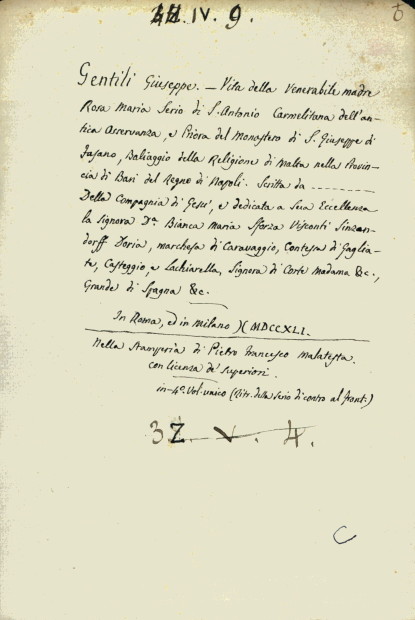 IV. 9.
Gentili Giuseppe. — Vita della Venerabile madre
Rosa Maria Serio di S. Antonio Carmelitana dell'an-
tica Osservanza, e Priora del Monastero di S. Giuseppe di
Fasano, Baliaggio della Religione di Malta nella Provin-
cia di Bari del Regno di Napoli. Scritta da ----------
Della Compagnia di Gesù, e dedicata a Sua Eccellenza
la Signora Dª Bianca Maria Sforza Visconti Sinzen-
dorff Doria, marchesa di Caravaggio, Contessa di Gaglia-
te, Casteggio, e Lachiarella, Signora di Corte Madama &c.,
Grande di Spagna &c.
In Roma, ed in Milano )( MDCCXLI.
Nella Stamperia di Pietro Francesco Malatesta.
con licenza de' Superiori.
in-4º. Vol. unico (Ritr. della Serio di contro al front.)
3Z. V. 4.
C